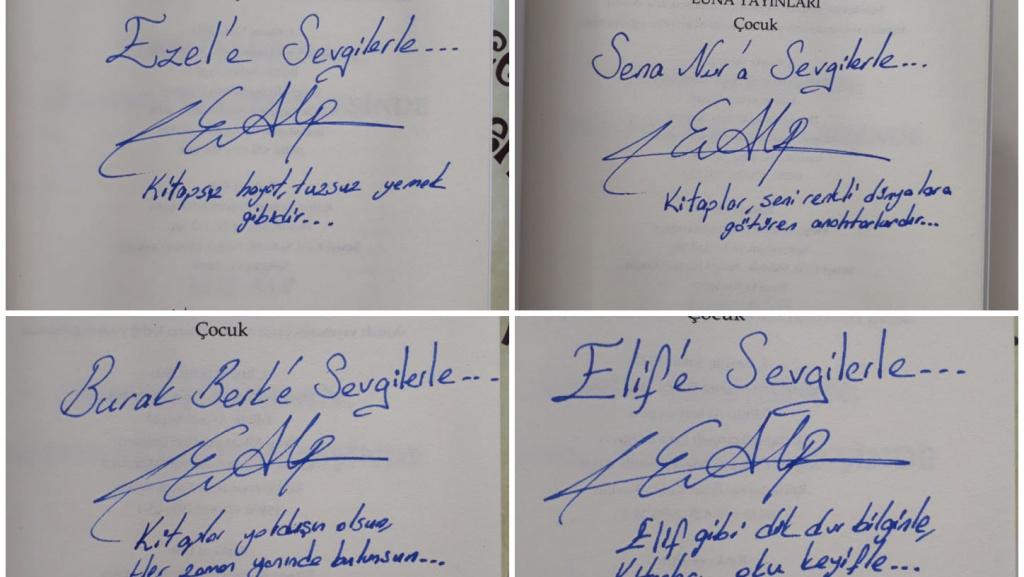 Ezel'e Sevgilerle...
Kitapsız hayat, tuzsuz yemek
gibidir...
LUNA YAYINLARI
Çocuk
Sena Nur'a Sevgilerle...
Kitaplar, seni renkli dünyalara
götüren anahtarlardır...
Çocuk
Burak Berk'e Sevgilerle...
Kitaplar yoldaşın olsun,
Her zaman yanında bulunsun...
Çocuk
Elif'e Sevgilerle...
Elif gibi dik dur bilginle,
Kitapları oku keyifle...